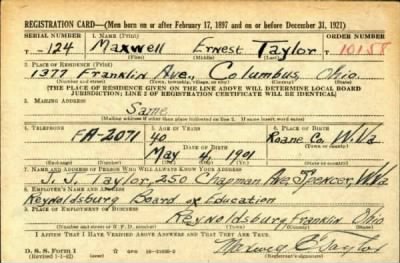 REGISTRATION CARD—(Men born on or after February 17, 1897 and on or before December 31, 1921)
SERIAL NUMBER 1. NAME (Print) ORDER NUMBER
T-124 Maxwell Ernest Taylor 10158
(First) (Middle) (Last)
2. PLACE OF RESIDENCE (Print)
1377 Franklin Ave., Columbus, Ohio.
(Number and street) (Town, township, village, or city) (County) (State)
[THE PLACE OF RESIDENCE GIVEN ON THE LINE ABOVE WILL DETERMINE LOCAL BOARD
JURISDICTION; LINE 2 OF REGISTRATION CERTIFICATE WILL BE IDENTICAL]
3. MAILING ADDRESS
Same
[Mailing address if other than place indicated on line 2. If same insert word same]
4. TELEPHONE 5. AGE IN YEARS 6. PLACE OF BIRTH
FA-2071 40 Roane Co.
DATE OF BIRTH (Town or county)
May 4, 1901 W. Va
(Exchange) (Number) (Mo.) (Day) (Yr.) (State or country)
7. NAME AND ADDRESS OF PERSON WHO WILL ALWAYS KNOW YOUR ADDRESS
J. J. Taylor, 250 Chapman Ave, Spencer, W.Va
8. EMPLOYER'S NAME AND ADDRESS
Reynoldsburg Board of Education
9. PLACE OF EMPLOYMENT OR BUSINESS
Reynoldsburg Franklin Ohio
(Number and street or R. F. D. number) (Town) (County) (State)
I AFFIRM THAT I HAVE VERIFIED ABOVE ANSWERS AND THAT THEY ARE TRUE.
D. S. S. Form 1
(Revised 1-1-42) (Over) GPO Maxwell E Taylor
(Registrant's signature)